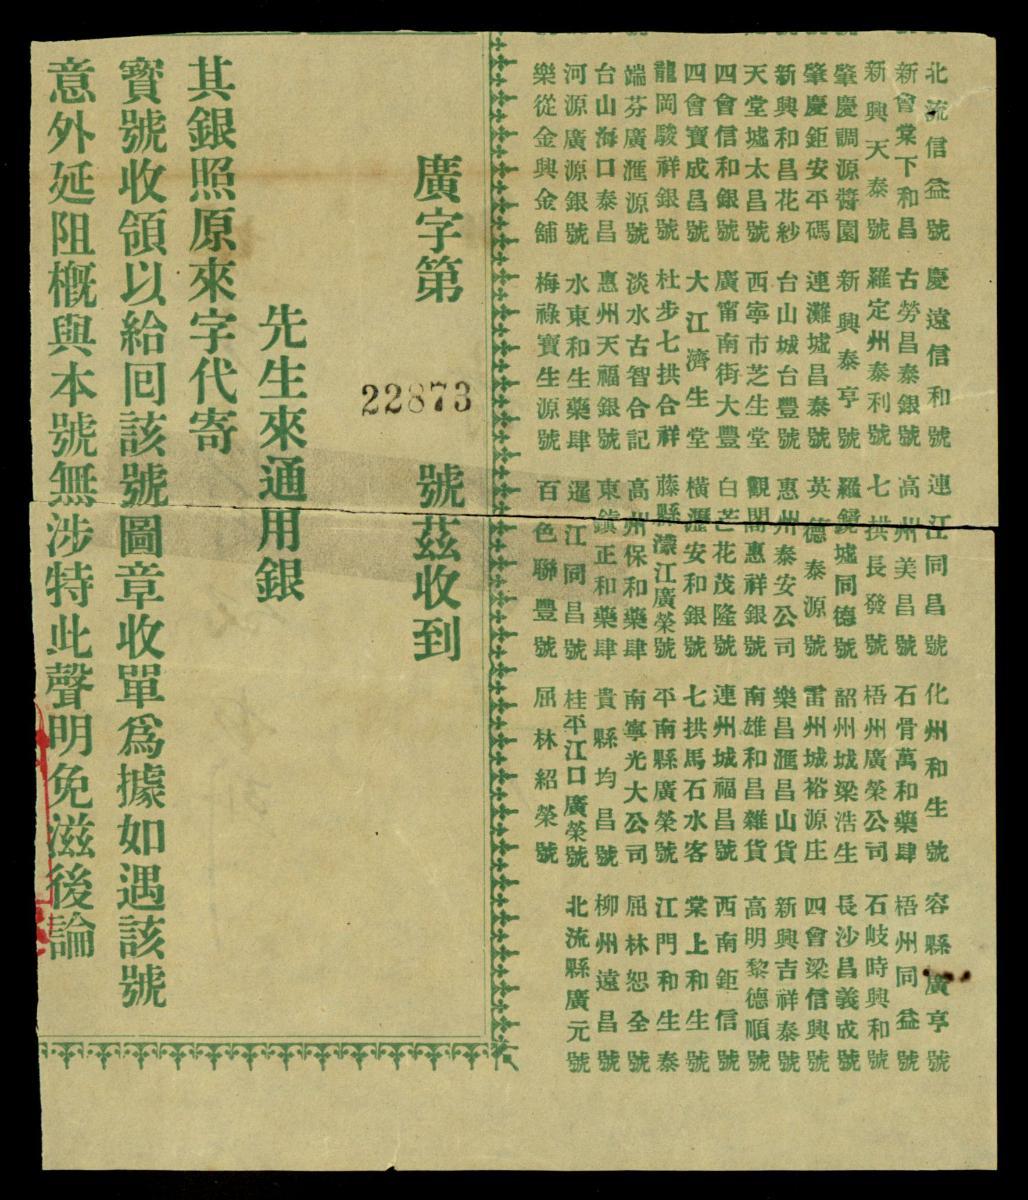 北流信益號 慶遠信和號 連江同昌號 化州和生號 容縣廣亨號
新會棠下和昌 古勞昌泰銀號 高州美昌號 石骨萬和藥肆 梧州同益號
新興天泰號 羅定州泰利號 七拱長發號 梧州廣榮公司 石岐時興和號
肇慶調源醬園 新興泰亨號 羅鏡墟同德號 韶州城梁浩生 長沙昌義成號
肇慶鉅安平碼 連灘墟昌泰號 英德泰源號 雷州城裕源庄 四會梁信興號
新興和昌花紗 台山城台豐號 惠州泰安公司 樂昌滙昌山貨 新興吉祥泰號
天堂墟太昌號 西寧市芝生堂 觀閣惠祥銀號 南雄和昌雜貨 高明黎德順號
四會信和銀號 廣甯南街大豐 白芒花茂隆號 連州城福昌號 西南鉅信號
四會寶成昌號 大江濟生堂 橫瀝安和銀號 七拱馬石水客 棠上和生號
龍岡駿祥銀號 杜步七拱合祥 藤縣濛江廣榮號 平南縣廣榮號 江門和生泰
端芬廣滙源號 淡水古智合記 高州保和藥肆 南寧光大公司 屈林恕全號
台山海口泰昌 惠州天福銀號 東鎮正和藥肆 貴縣均昌號 柳州遠昌號
河源廣源銀號 水東和生藥肆 暹江同昌號 桂平江口廣榮號 北流縣廣元號
樂從金興金舖 梅祿寶生源號 百色聯豐號 屈林紹榮號
廣字第 22873 號茲收到
先生來通用銀
其銀照原來字代寄
寳號收領以給囘該號圖章收單爲據如遇該號
意外延阻槪與本號無涉特此聲明免滋後論